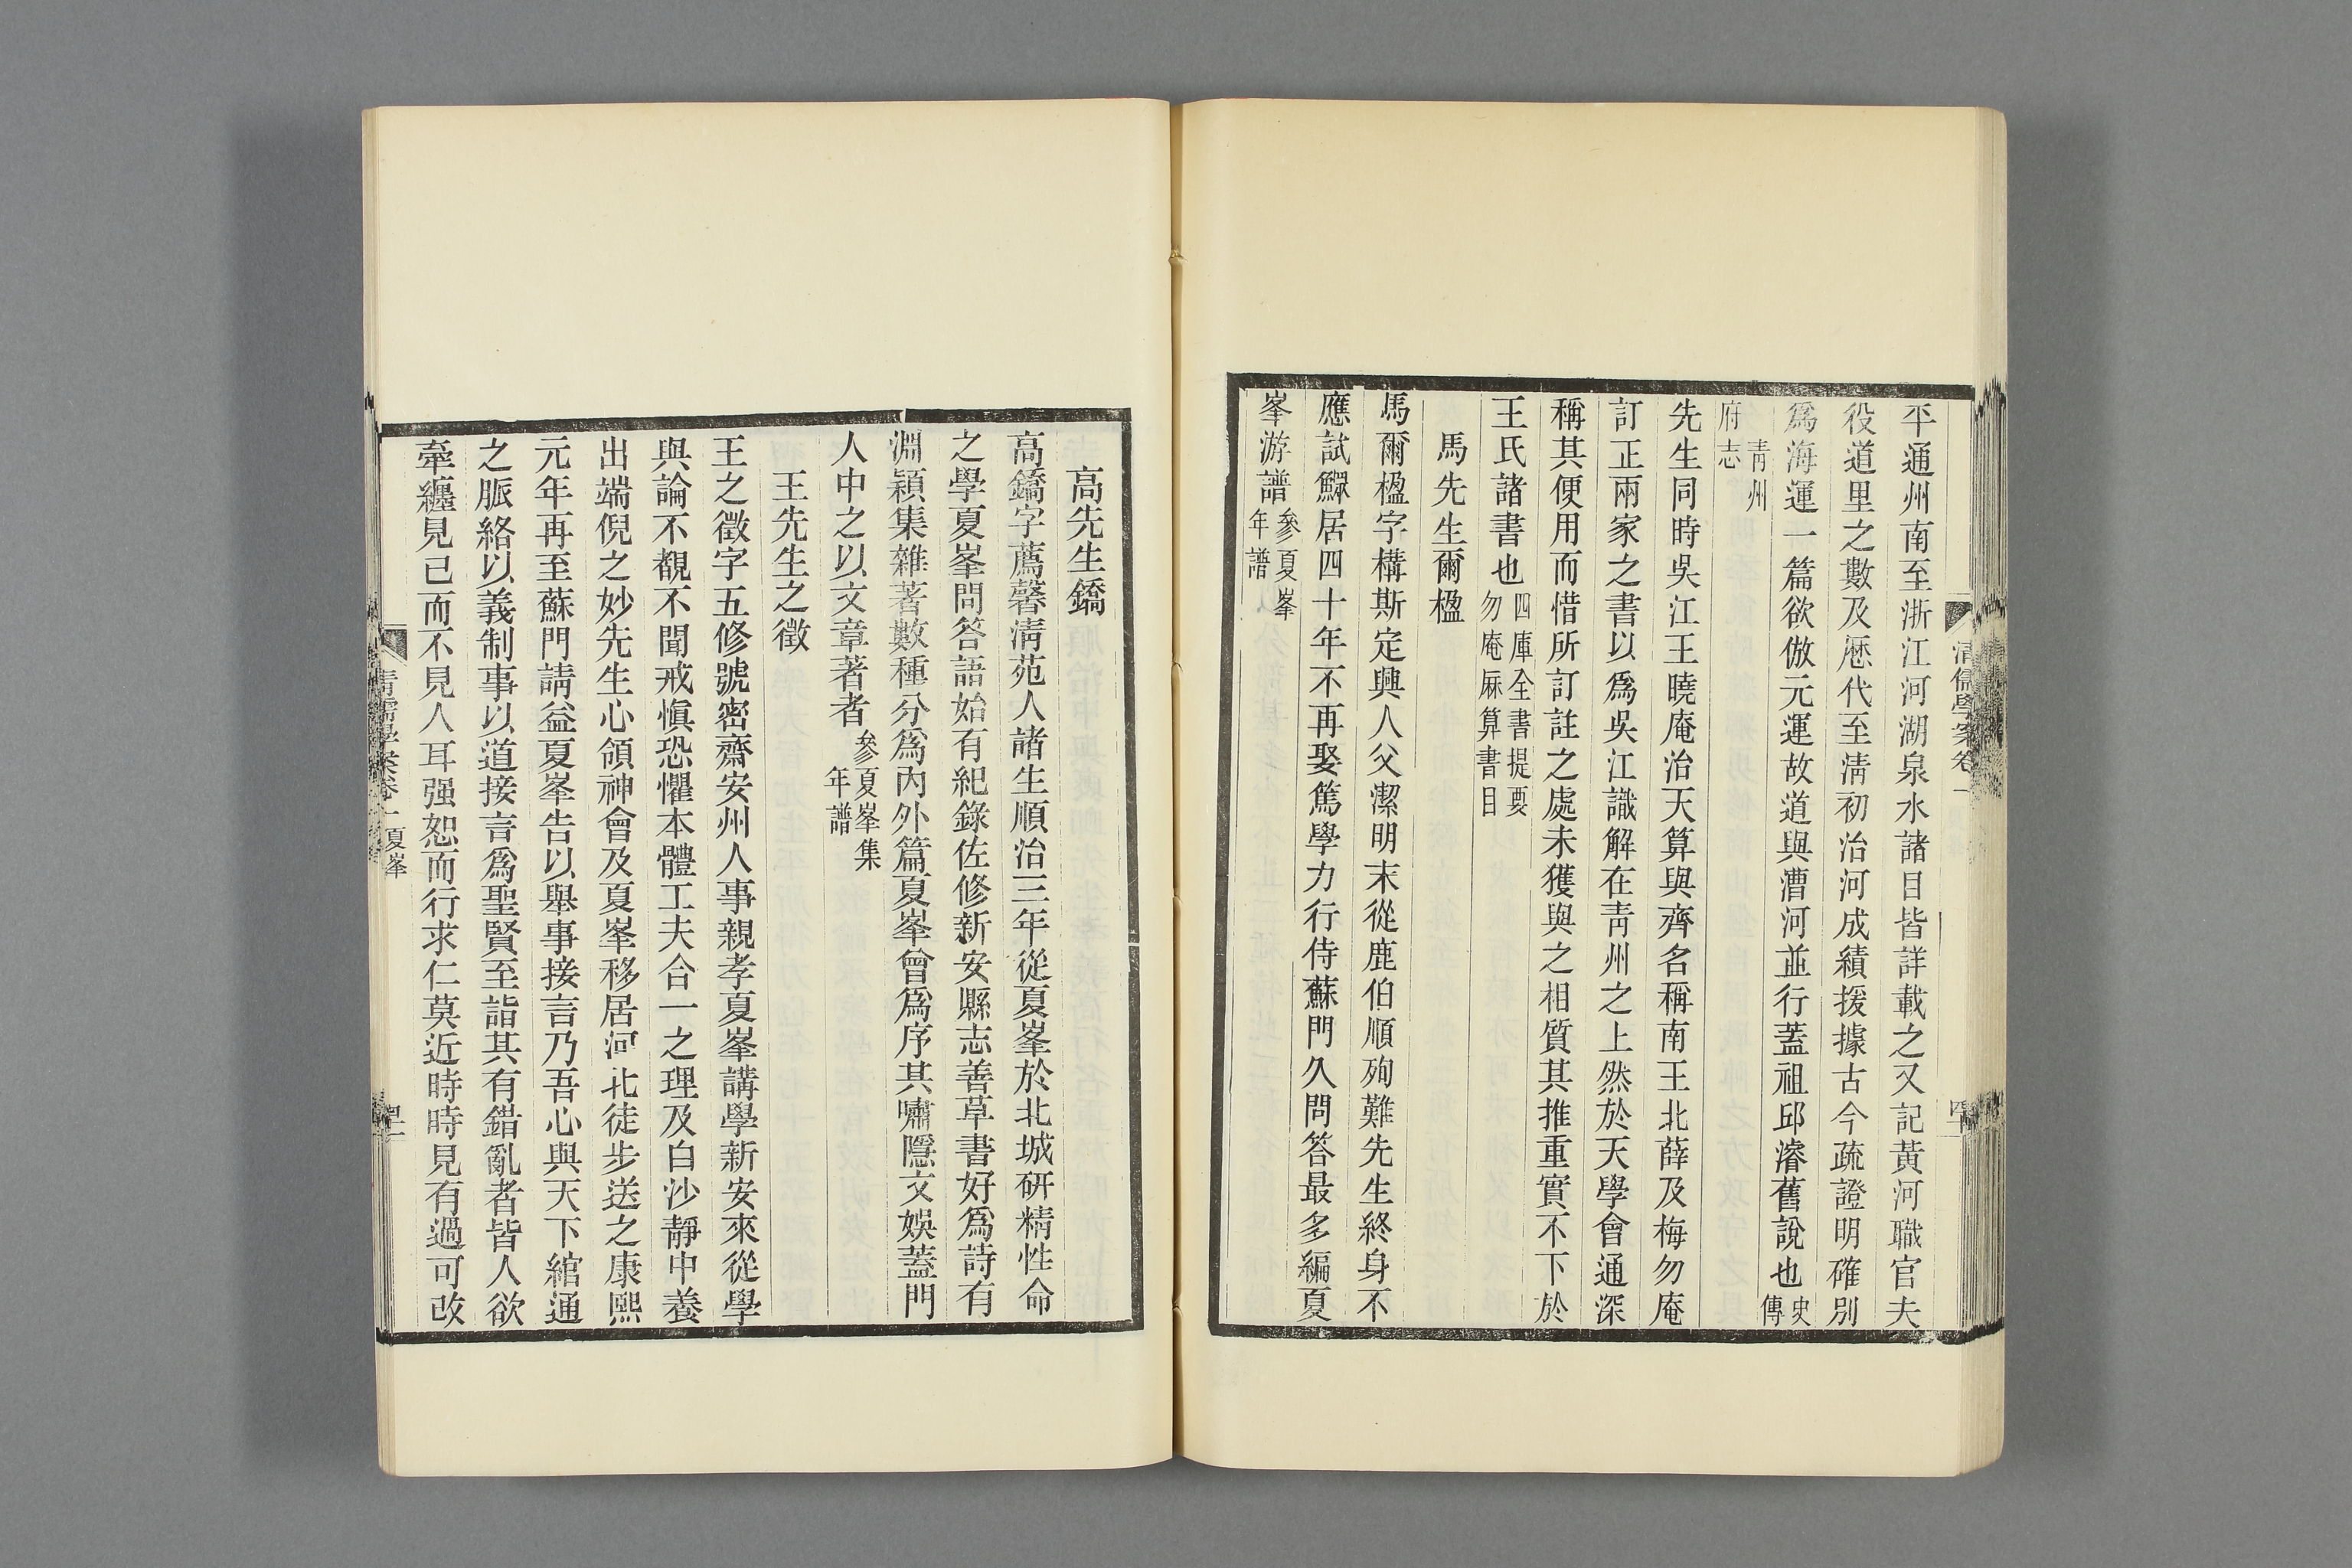 平通州南至浙江河湖泉水諸目皆詳載之又記黃河職官夫
役道里之數及厯代至淸初治河成績援據古今疏證明確別
爲海運一篇欲倣元運故道與漕河並行蓋祖邱濬舊說也史傳
靑州府志
先生同時吳江王曉庵治天算與齊名稱南王北薛及梅勿庵
訂正兩家之書以爲吳江識解在靑州之上然於天學會通深
稱其便用而惜所訂註之處未獲與之相質其推重實不下於
王氏諸書也四庫全書提要勿庵厤算書目
馬先生爾楹
馬爾楹字構斯定興人父潔明末從鹿伯順殉難先生終身不
應試鰥居四十年不再娶篤學力行侍蘇門久問答最多編夏
峯游譜參夏峯年譜
淸儒學案卷一
高先生鐈
高鐈字薦馨淸苑人諸生順治三年從夏峯於北城硏精性命
之學夏峯問答語始有紀錄佐修新安縣志善草書好爲詩有
淵穎集雜著數種分爲內外篇夏峯曾爲序其嘯隱文娛蓋門
人中之以文章著者參夏峯集年譜
王先生之徵
王之徵字五修號密齋安州人事親孝夏峯講學新安來從學
與論不覩不聞戒愼恐懼本體工夫合一之理及白沙靜中養
出端倪之妙先生心領神會及夏峯移居河北徒步送之康熙
元年再至蘇門請益夏峯告以舉事接言乃吾心與天下綰通
之脈絡以義制事以道接言爲聖賢至詣其有錯亂者皆人欲
牽纏見己而不見人耳强恕而行求仁莫近時時見有過可改
淸儒學案卷一 夏峯